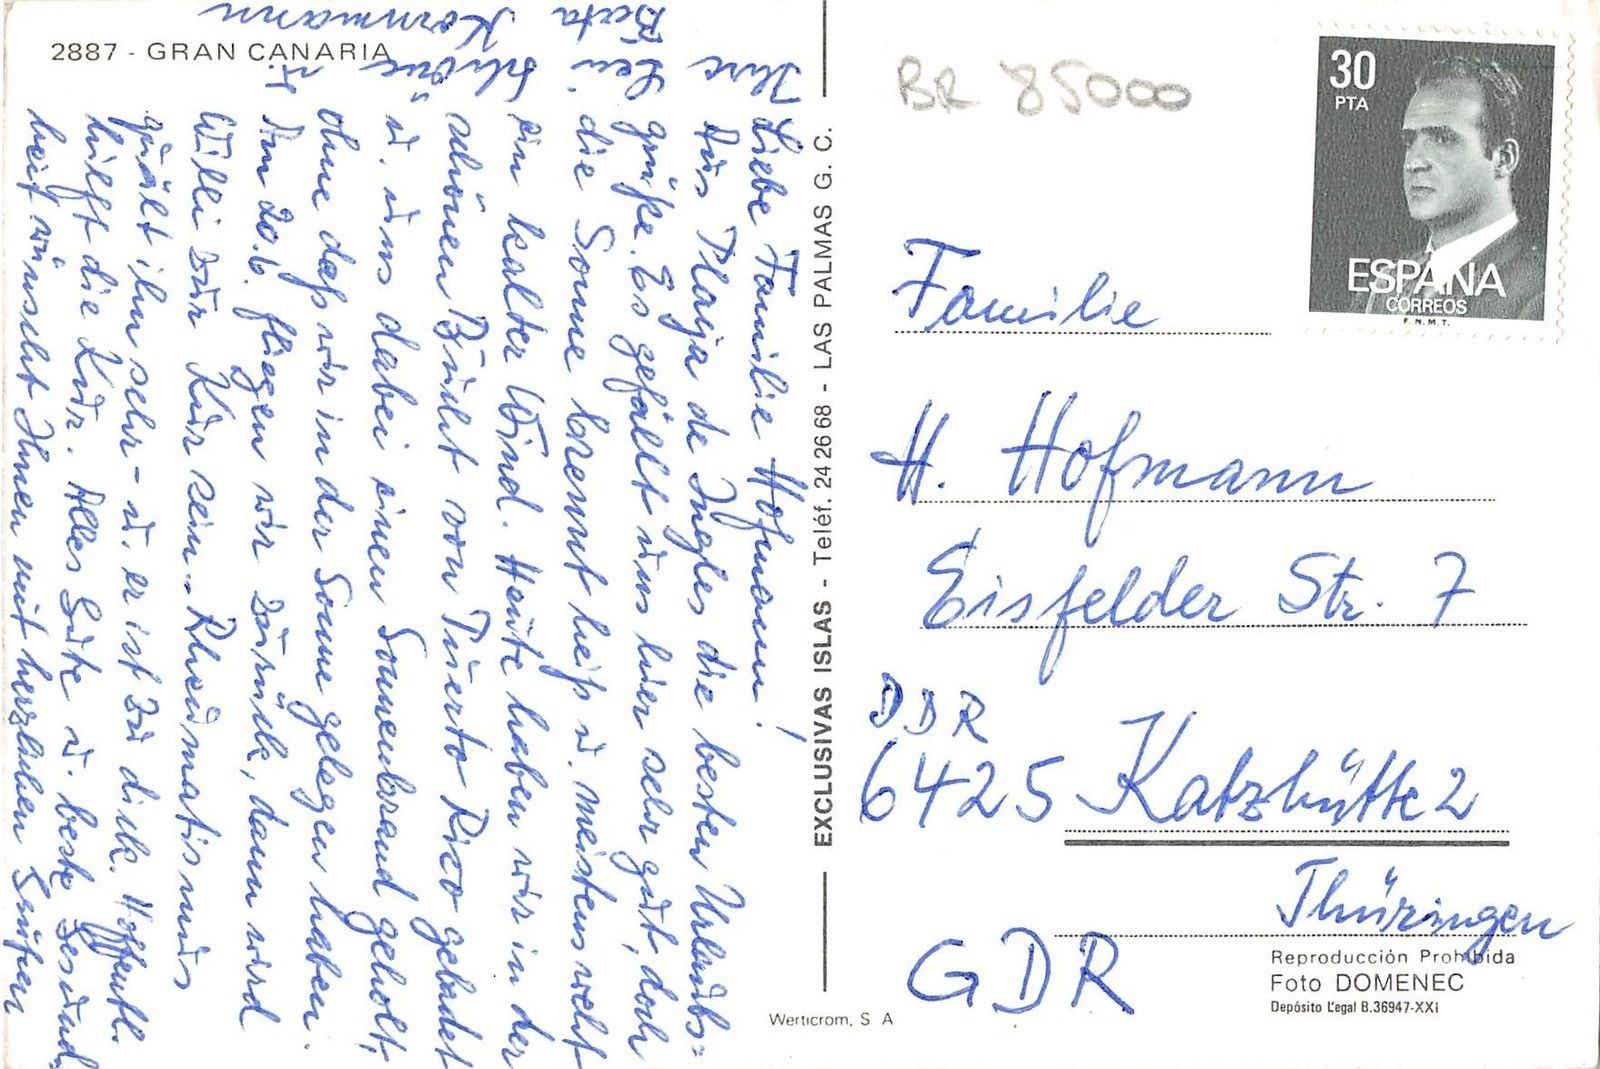 2887 - GRAN CANARIA
Liebe Familie Hofmann!
Aus Playa de Ingles die besten Urlaubs=
grüße. Es gefällt uns hier sehr gut, doch
die Sonne brennt heiß u. meistens weht
ein kalter Wind. Heute haben wir in der
schönen Bucht von Puerto Rico gebadet
u. uns dabei einen Sonnenbrand geholt,
ohne daß wir in der Sonne gelegen haben.
Am 20.6. fliegen wir zurück, dann wird
Willi zur Kur sein. Rheumatismus
quält ihn sehr - u. er ist zu dick. Hoffentl.
hilft die Kur. Alles Gute u. beste Gesund,
heit wünscht Ihnen mit herzlichen Grüßen
Ihre
Beata Kornmann
EXCLUSIVAS ISLAS - Teléf. 24 26 68 - LAS PALMAS G. C.
Werticrom, S A
BR 85000
30
PTA
ESPAÑA
CORREOS
F.N.M.T.
Familie
H. Hofmann
Eisfelder Str. 7
DDR
6425 Katzhütte 2
Thüringen
GDR
Reproducción Prohibida
Foto DOMENEC
Depósito Legal B.36947-XXI